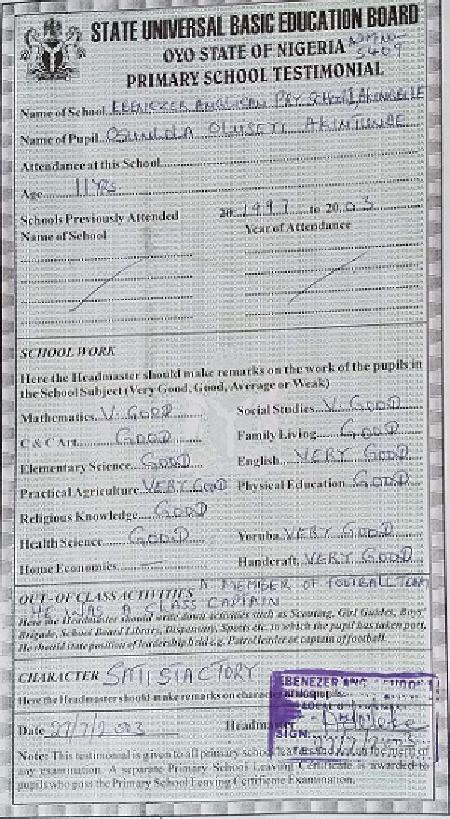 STATE UNIVERSAL BASIC EDUCATION BOARD
OYO STATE OF NIGERIA
5409
PRIMARY SCHOOL TESTIMONIAL
Name of School EBENEZER ANGLICAN PRY SCHOOL
Name of Pupil OLUSEYI
Attendance at this School
Age 11 Yrs
Schools Previously Attended 20 1997 to 20 03
Name of School Year of Attendance
SCHOOL WORK
Here the Headmaster should make remarks on the work of the pupils in
the School Subject (Very Good, Good, Average or Weak)
Mathematics V. GOOD Social Studies V. GOOD
C & C Art GOOD Family Living GOOD
Elementary Science GOOD English VERY GOOD
Practical Agriculture VERY GOOD Physical Education GOOD
Religious Knowledge GOOD
Health Science GOOD Yoruba VERY GOOD
Home Economics — Handcraft VERY GOOD
OUT-OF CLASS ACTIVITIES MEMBER OF FOOTBALL TEAM
HE WAS A CLASS CAPTAIN
Here the Headmaster should write down activities such as Scouting, Girl Guides, Boys'
Brigade, School Board Library, Dispensary, Sports etc. in which the pupil has taken part.
He should state position of leadership held e.g. Patrol leader or captain of football.
CHARACTER SATISTACTORY
Here the Headmaster should make remarks on character of his pupils.
EBENEZER ANG.
Date 27/7/2003 Headmaster
SIGN:
Note: This testimonial is given to all primary school leavers and is not on the merit of
any examination. A separate Primary School Leaving Certificate is awarded to
pupils who pass the Primary School Leaving Certificate Examination.